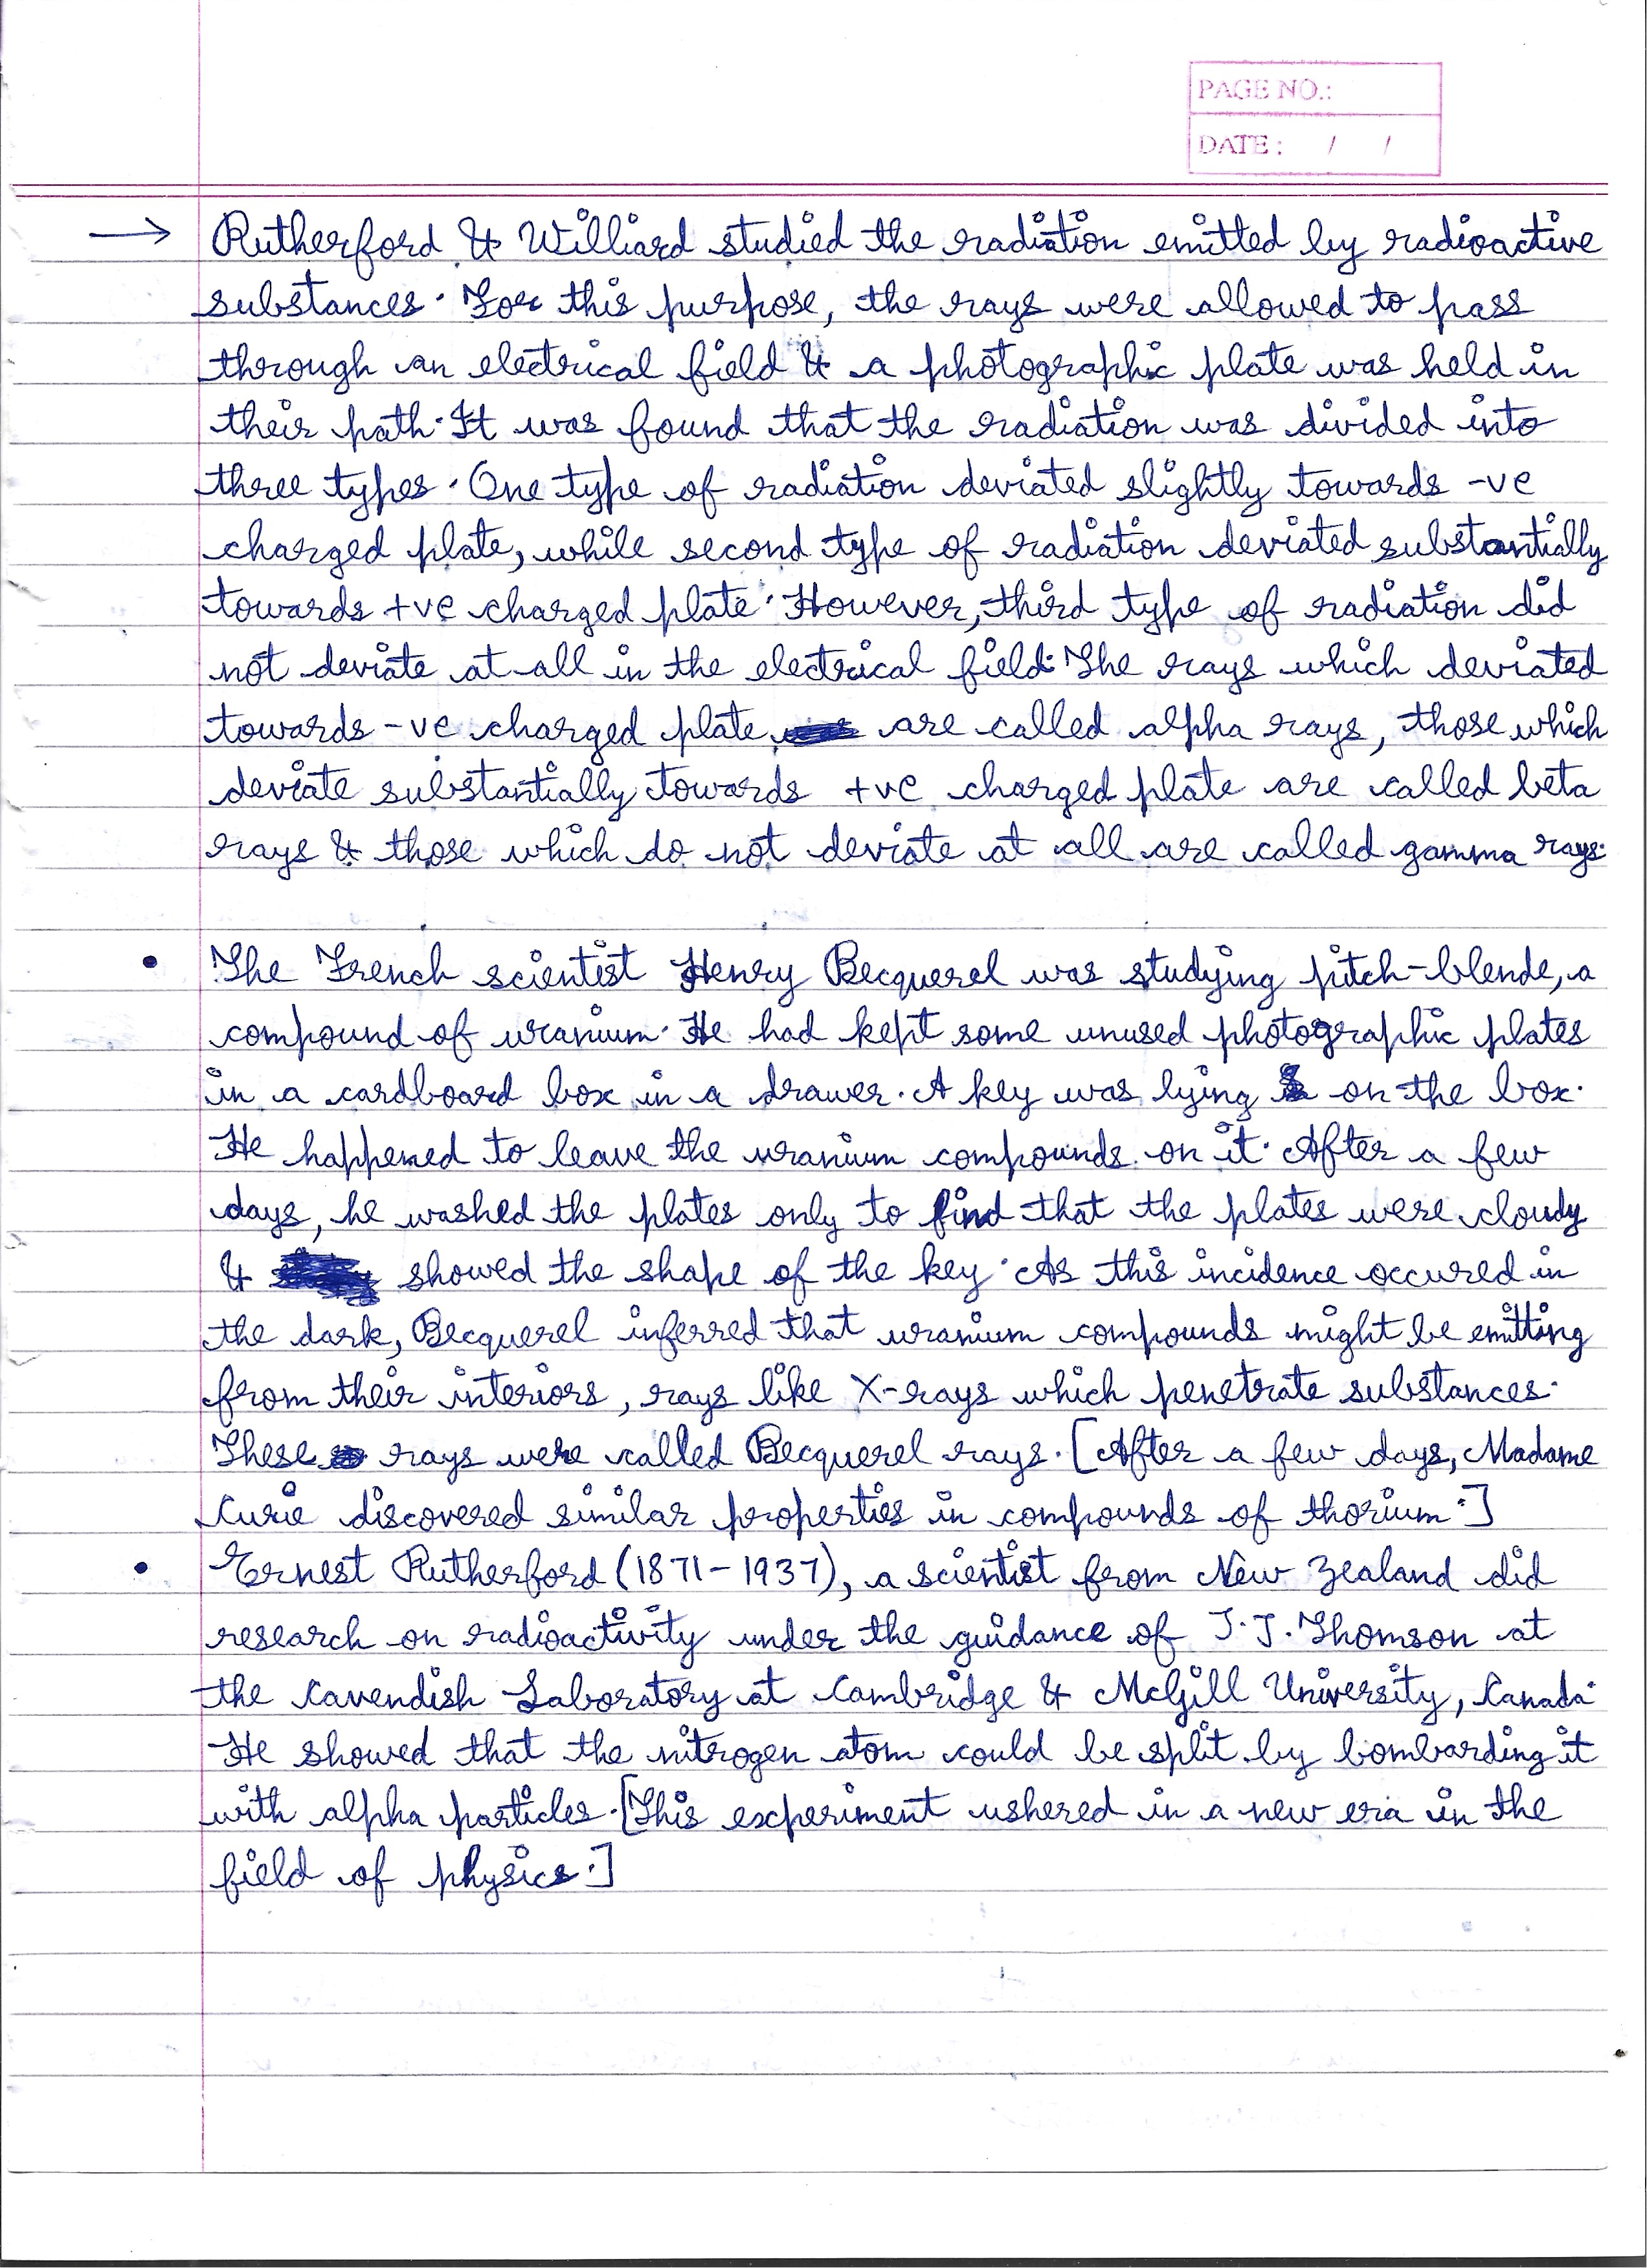 PAGE NO.:
DATE: / /
→ Rutherford & Williard studied the radiation emitted by radioactive
substances. For this purpose, the rays were allowed to pass
through an electrical field & a photographic plate was held in
their path. It was found that the radiation was divided into
three types. One type of radiation deviated slightly towards -ve
charged plate, while second type of radiation deviated substantially
towards +ve charged plate. However, third type of radiation did
not deviate at all in the electrical field. The rays which deviated
towards -ve charged plate are called alpha rays, those which
deviate substantially towards +ve charged plate are called beta
rays & those which do not deviate at all are called gamma rays.
• The French scientist Henry Becquerel was studying pitch-blende, a
compound of uranium. He had kept some unused photographic plates
in a cardboard box in a drawer. A key was lying on the box.
He happened to leave the uranium compounds on it. After a few
days, he washed the plates only to find that the plates were cloudy
& showed the shape of the key. As this incidence occured in
the dark, Becquerel inferred that uranium compounds might be emitting
from their interiors, rays like X-rays which penetrate substances.
These rays were called Becquerel rays. [After a few days, Madame
Curie discovered similar properties in compounds of thorium.]
• Ernest Rutherford (1871-1937), a scientist from New Zealand did
research on radioactivity under the guidance of J.J. Thomson at
the Cavendish Laboratory at Cambridge & McGill University, Canada.
He showed that the nitrogen atom could be split by bombarding it
with alpha particles. [This experiment ushered in a new era in the
field of physics.]